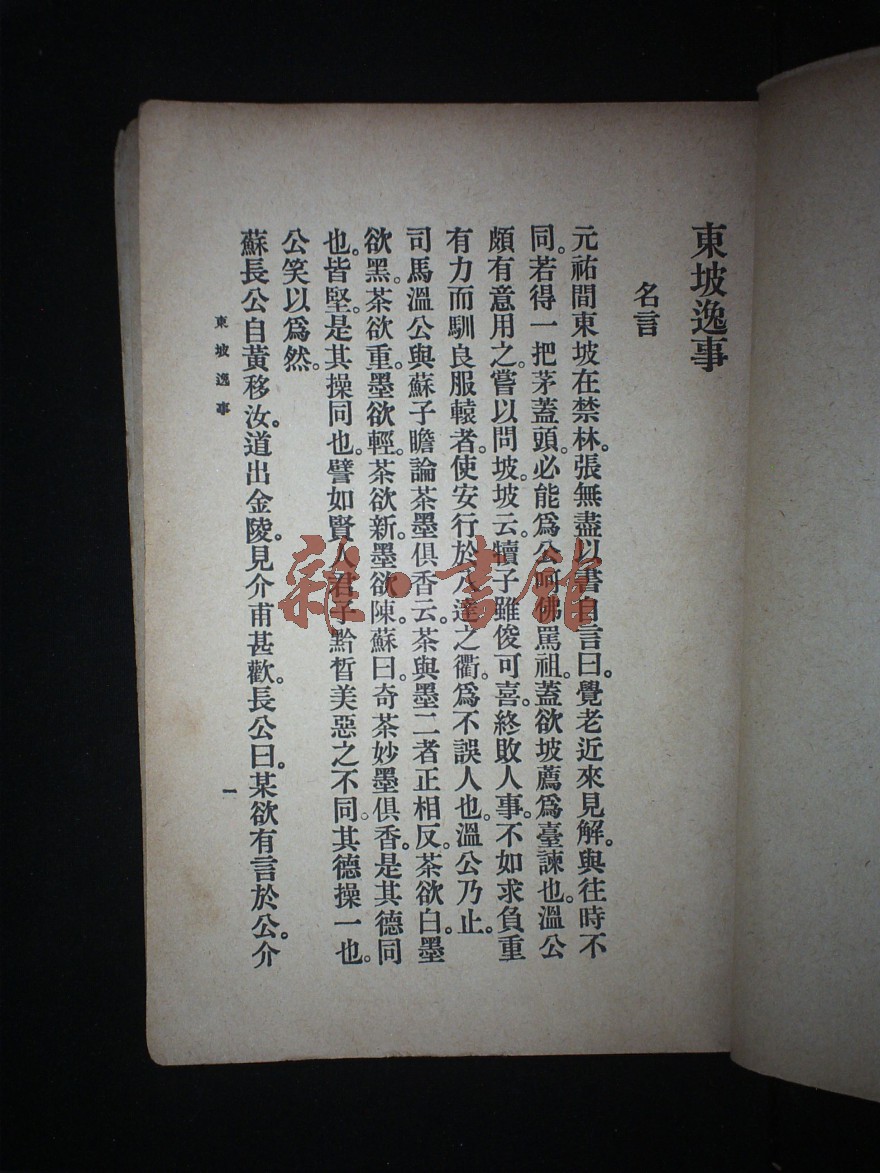 東坡逸事
名言
元祐間東坡在禁林。張無盡以書自言曰。覺老近來見解。與往時不
同。若得一把茅蓋頭。必能爲公呵佛罵祖。蓋欲坡薦爲臺諫也。溫公
頗有意用之。嘗以問坡。坡云。犢子雖俊可喜。終敗人事。不如求負重
有力而馴良服轅者。使安行於八達之衢。爲不誤人也。溫公乃止。
司馬溫公與蘇子瞻論茶墨俱香云。茶與墨二者正相反。茶欲白。墨
欲黑。茶欲重。墨欲輕。茶欲新。墨欲陳。蘇曰。奇茶妙墨俱香。是其德同
也。皆堅。是其操同也。譬如賢人君子黔皙美惡之不同。其德操一也。
公笑以爲然。
蘇長公自黃移汝。道出金陵。見介甫甚歡。長公曰。某欲有言於公。介
東坡逸事
一
雜·書館